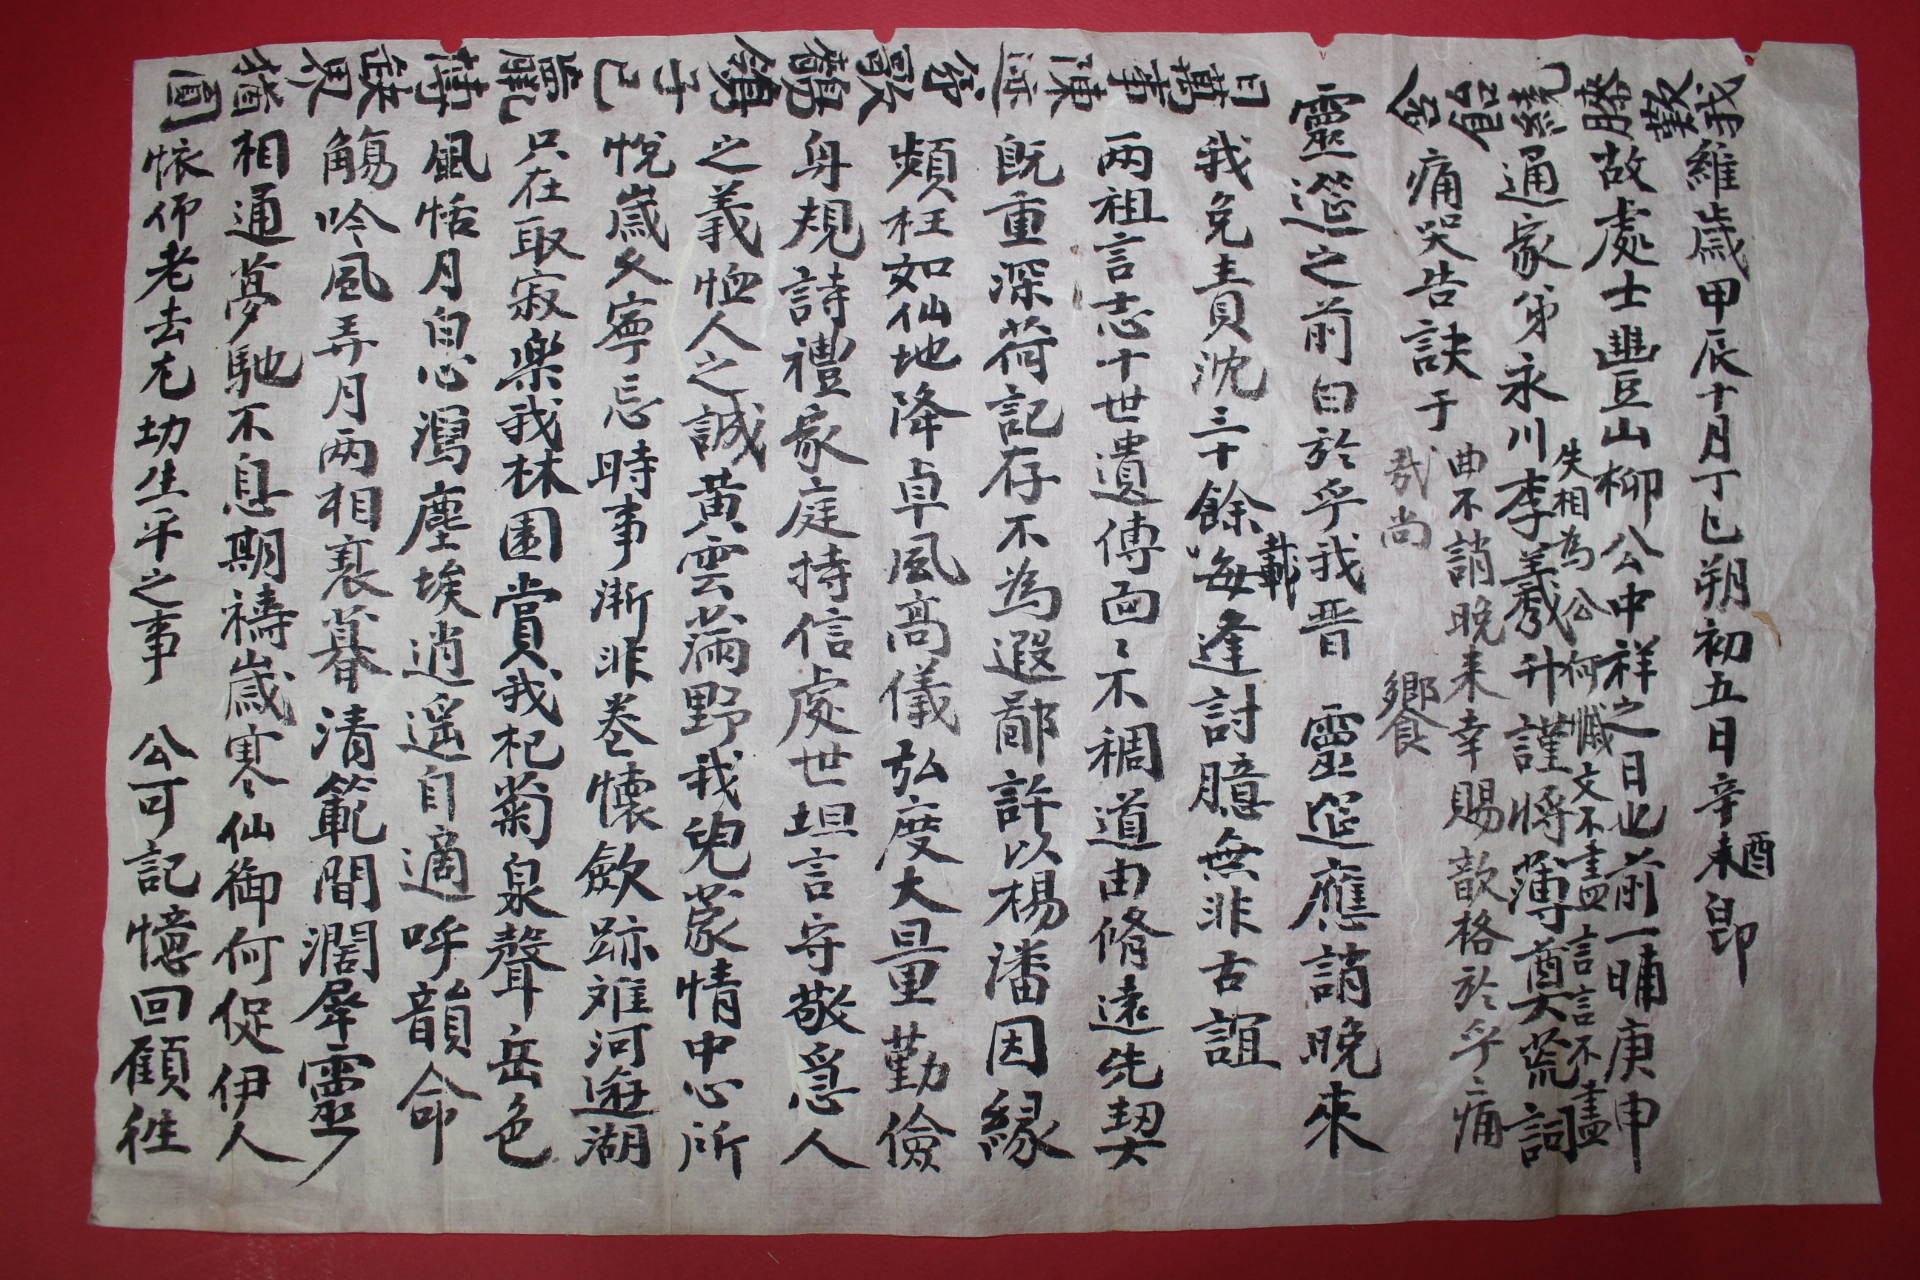 維歲甲辰十月丁巳朔初五日辛未酉卽
故處士豊山柳公中祥之日也前一晡庚申
通家弟永川李羲升謹將薄奠荒詞
痛哭告訣于
靈筵之前曰於乎我晋 靈筵應誚晚來
我免責沈三十餘載每逢討臆無非古誼
兩祖言志十世遺傳面〻不稠道由脩遠先契
旣重深荷記存不爲遐鄙許以楊潘因緣
頻枉如仙地降卓風高儀弘度大量勤儉
身規詩禮家庭持信處世坦言守敬急人
之義恤人之誠黃雲滿野我兒蒙情中心所
悅歲久寧忘時事漸非卷懷斂跡雒河遊湖
只在取寂樂我林園賞我杞菊泉聲岳色
風恬月白心瀉塵埃逍遥自適呼韻命
觴吟風弄月兩相衰暮清範間濶犀靈
相通夢馳不息期禱歲寒仙御何促伊人
懷仰老去尤切生平之事 公可記憶回顧徃
失相爲公何憾文不盡言言不盡
曲不誚晚来幸賜歆格於乎〻痛
哉尚
饗